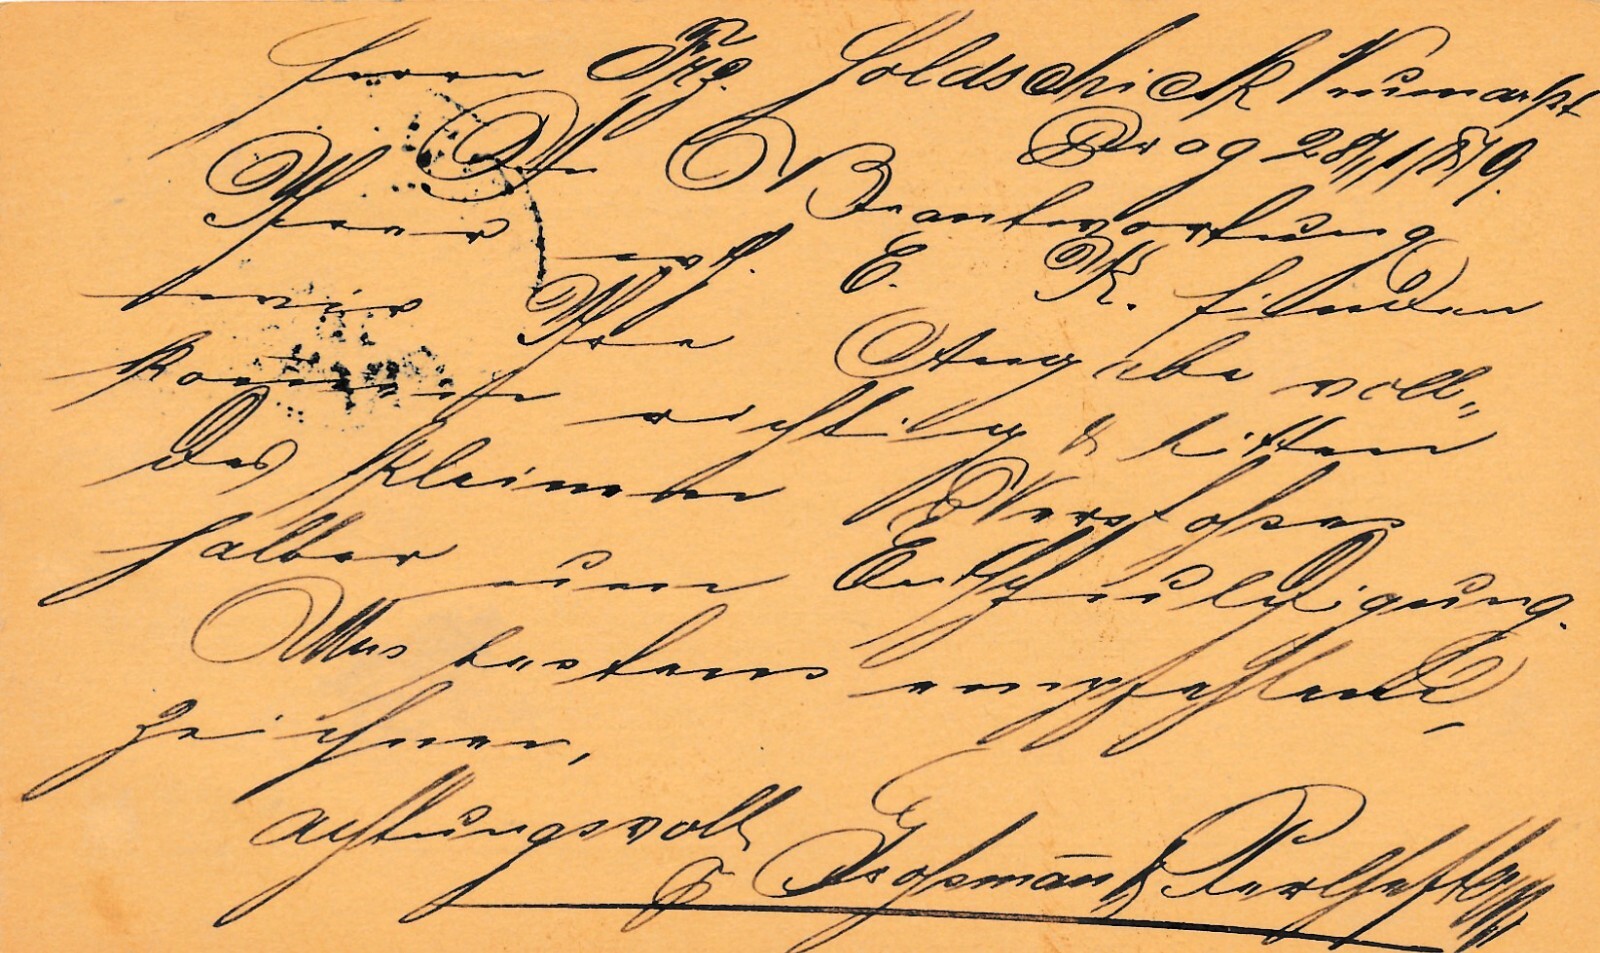 Herrn Frz. Goldschick Neumarkt
Prag 28/1 1879.
In Beantwortung
Ihrer E. K. finden
wir Ihre Angabe voll-
kommen richtig & bitten
des kleinen Verstoßes
halber um Entschuldigung.
Uns bestens empfehlend,
zeichnen,
achtungsvoll
Großmann & Perlhefter